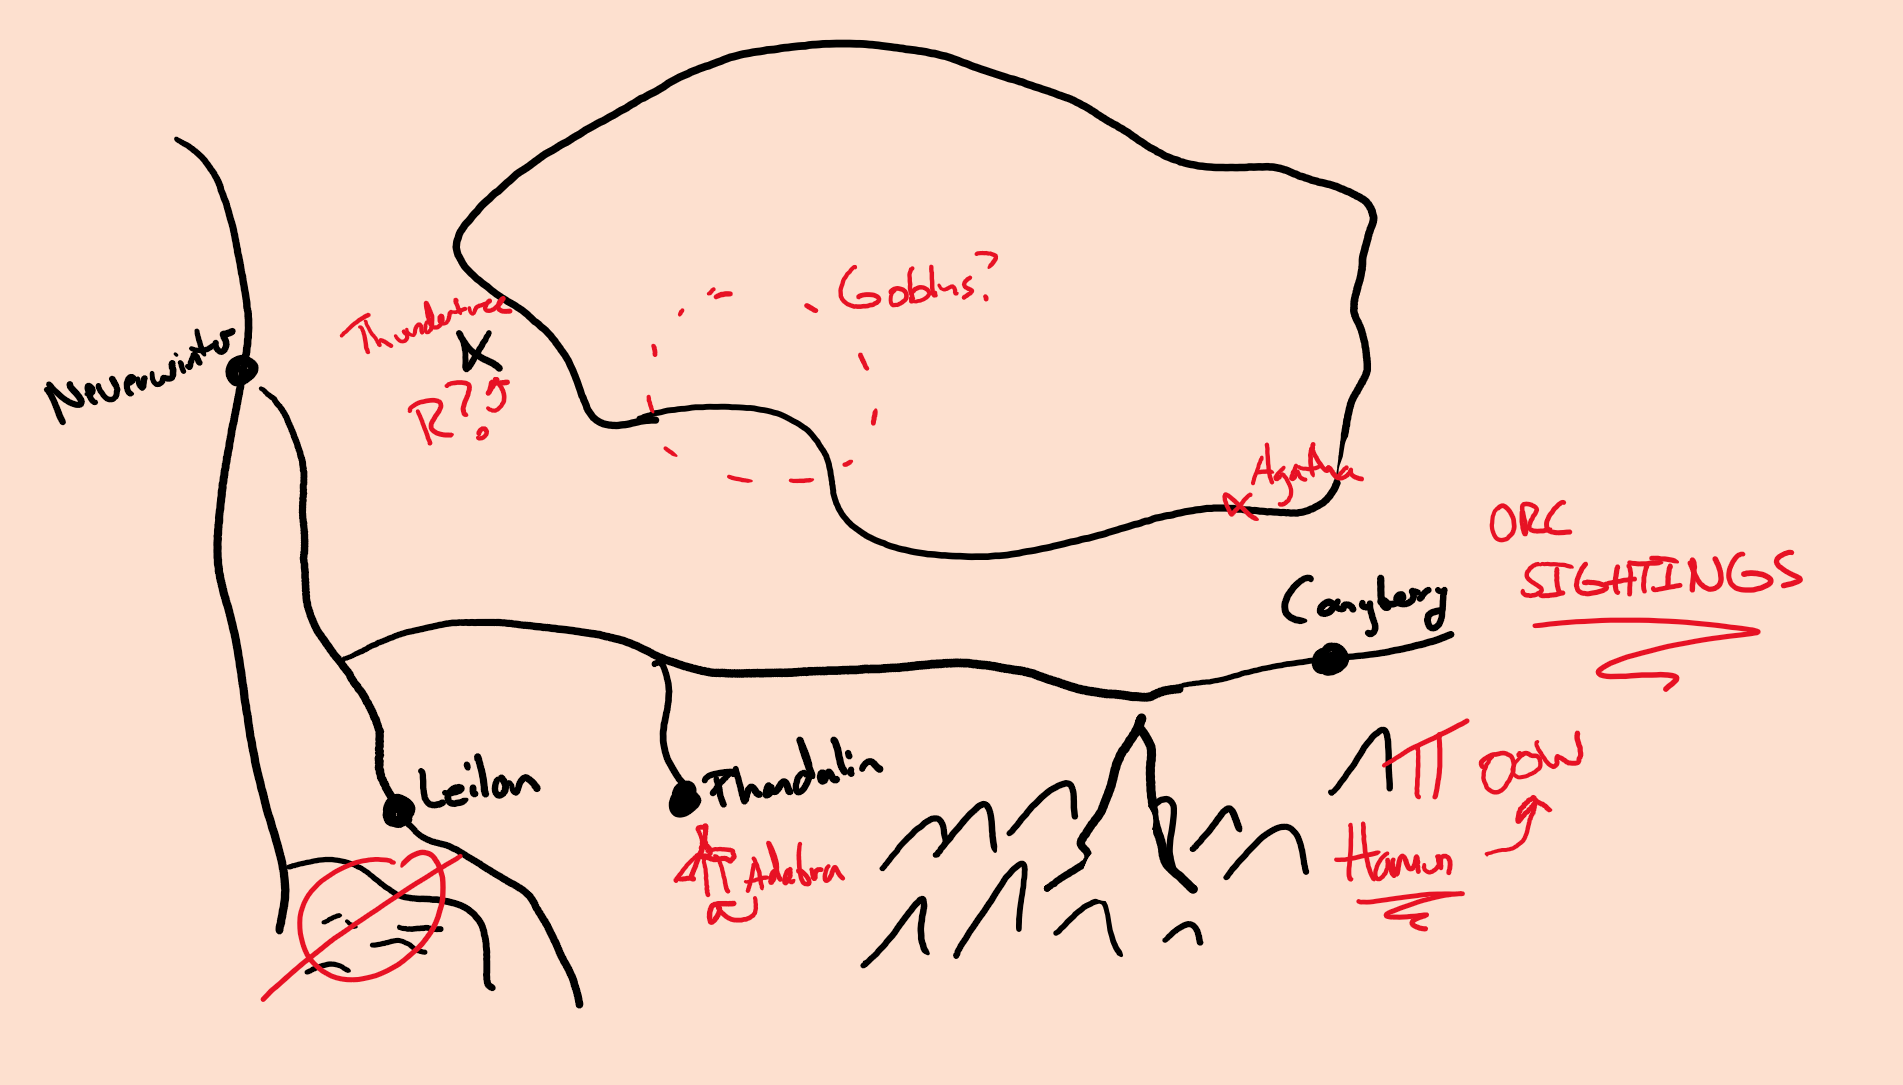 Goblns?
Thundertree
Neverwintr
R??
Agatha
ORC
SIGHTINGS
Conyberry
Leilon
Phandalin
OOW
Adabra
Hamun